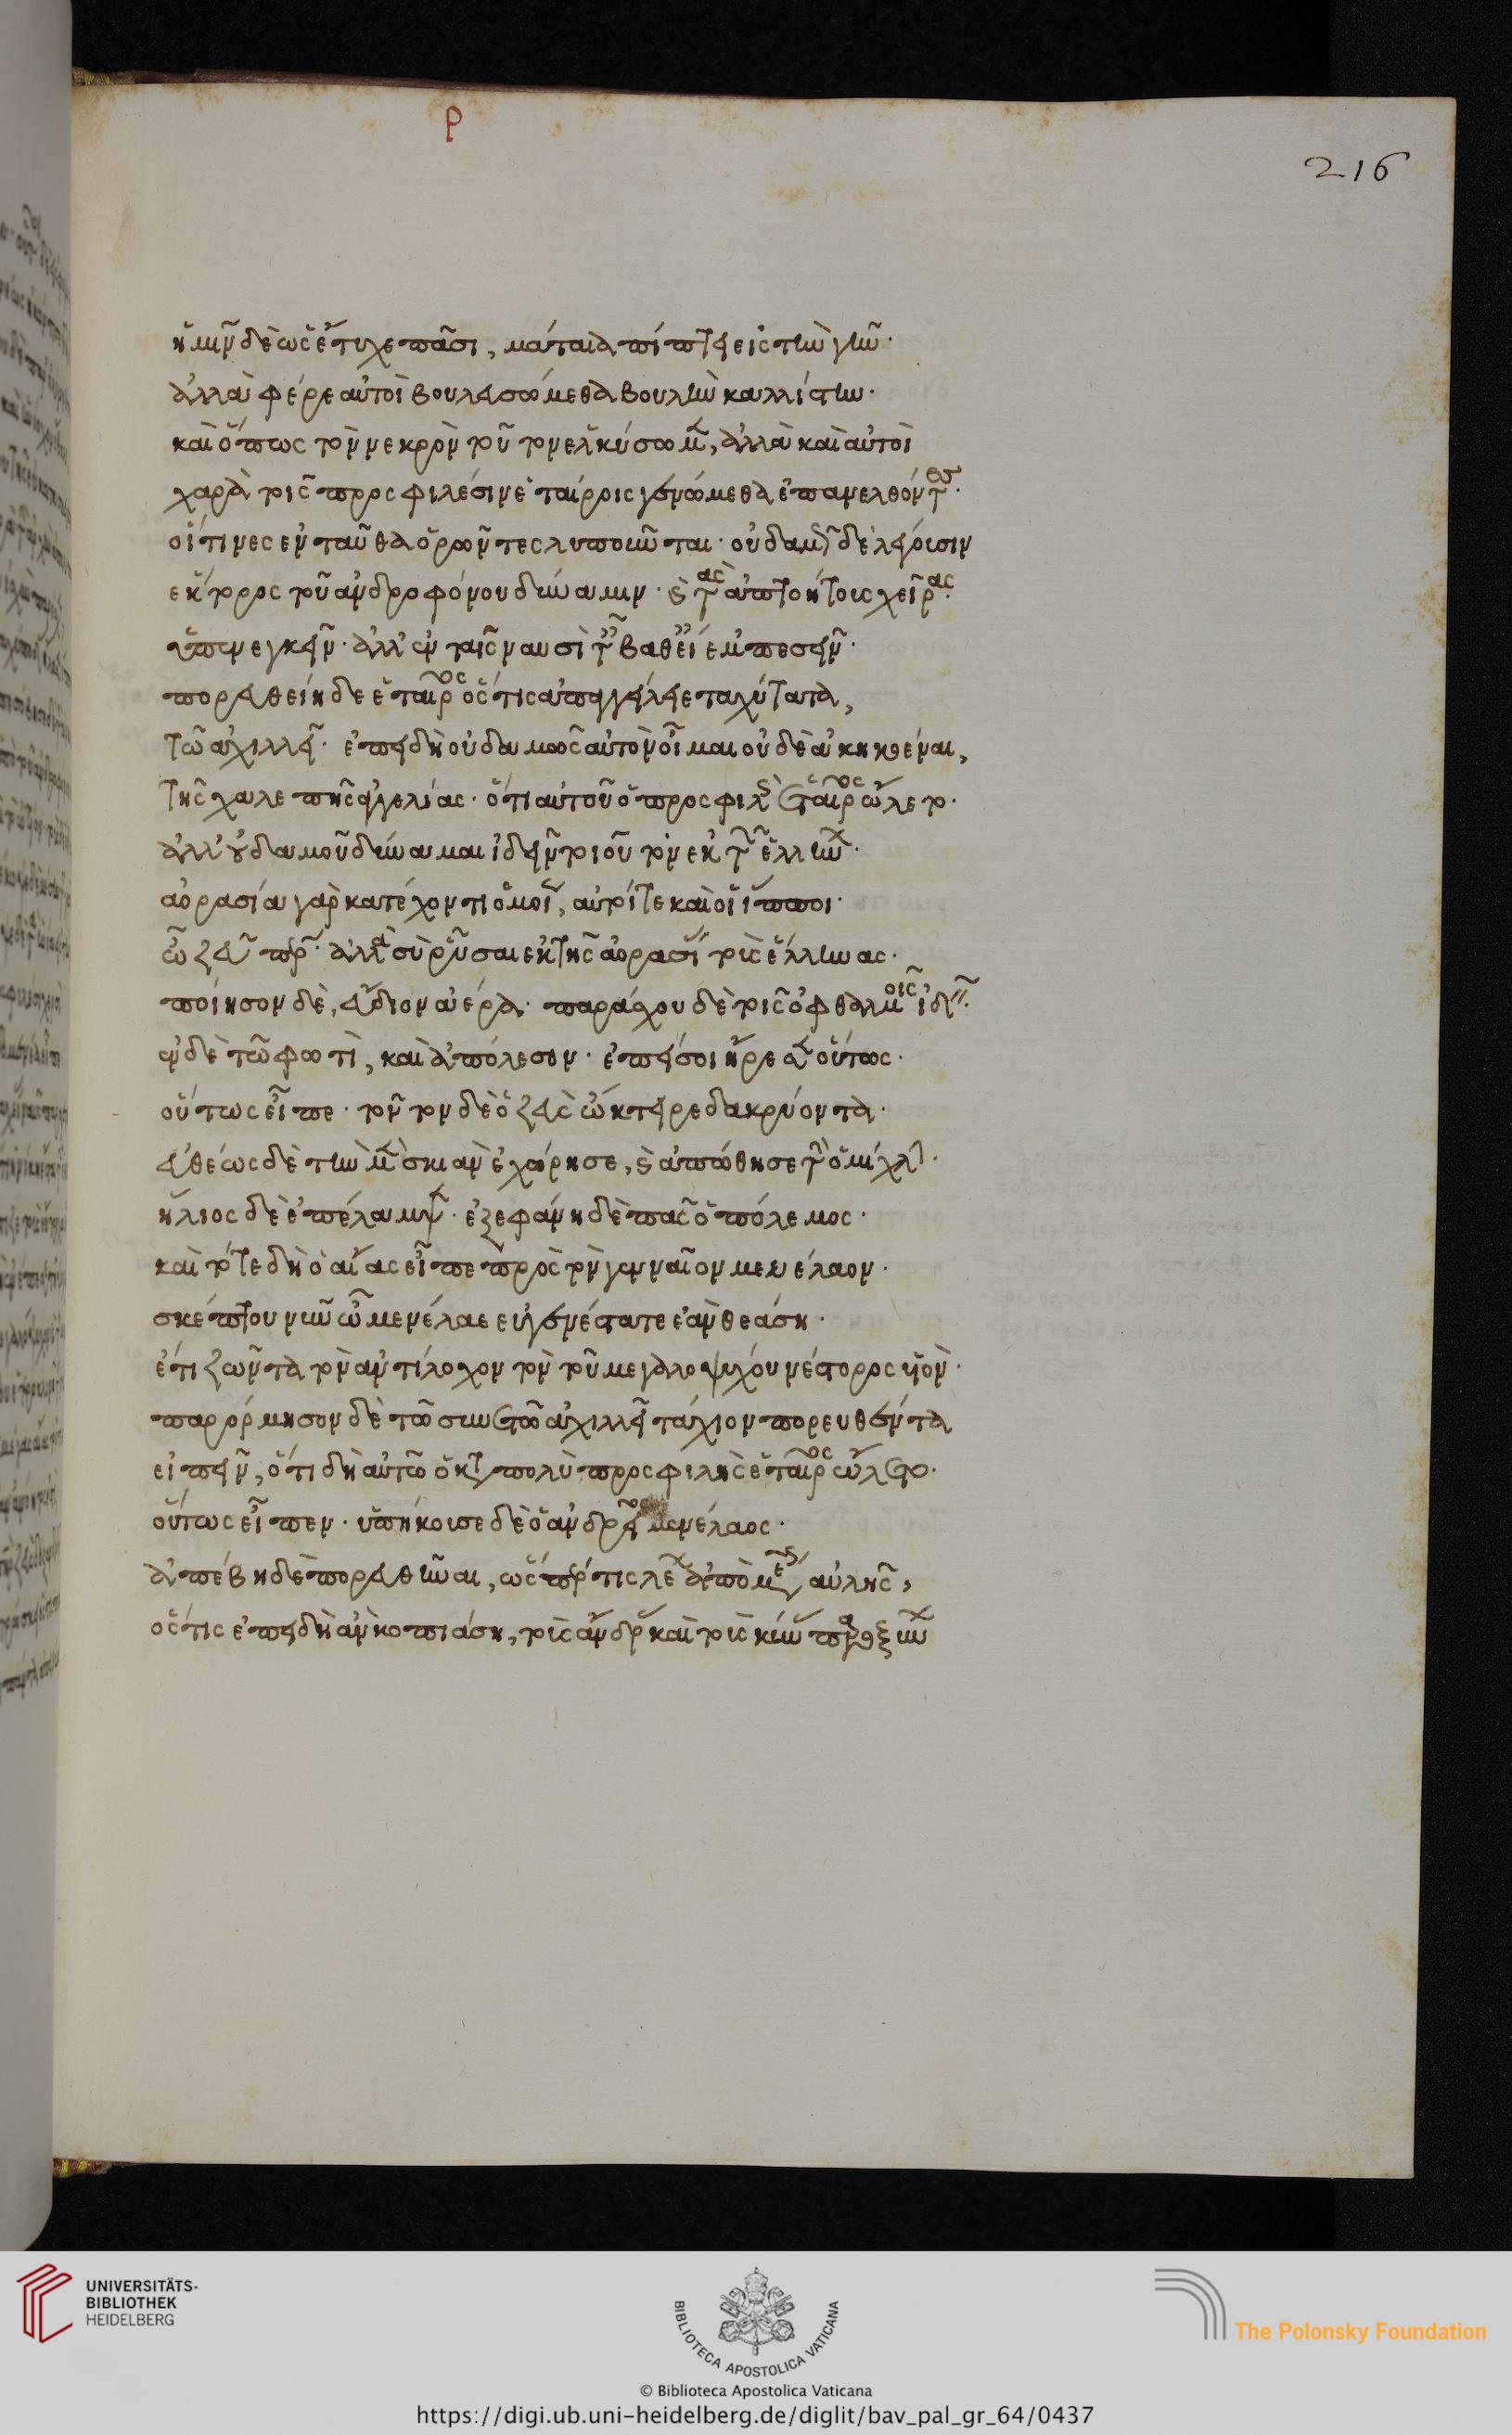 Ρ
216
ἡμῖν δὲ ὡς ἔτυχε πᾶσι, μάταια πίπτει εἰς τὴν γῆν·
ἀλλὰ φέρε αὐτοὶ βουλευσώμεθα βουλὴν καλλίστην·
καὶ ὅπως τὸν νεκρὸν τοῦτον ἑλκύσωμεν, ἀλλὰ καὶ αὐτοὶ
χαρὰ τοῖς προσφιλέσιν ἑταίροις γενώμεθα ἐπανελθόντες·
οἵτινες ἐνταῦθα ὁρῶντες λυποῦνται· οὐδαμῶς δὲ λέγουσιν
ἕκτορος τοῦ ἀνδροφόνου δύναμιν· καὶ τὰς ἀπτοήτους χεῖρας·
ὑπενεγκεῖν· ἀλλ' ἐν ταῖς ναυσὶ ταῖς βαθείαις ἐμπεσεῖν·
πορευθείη δὲ ἑταῖρος ὅστις ἀπαγγείλειε ταχύτατα,
τῷ ἀχιλλεῖ· ἐπειδὴ οὐδαμῶς αὐτὸν οἶμαι οὐδὲ ἀκηκοέναι,
τῆς χαλεπῆς ἀγγελίας· ὅτι αὐτοῦ ὁ προσφιλὴς ἑταῖρος ὤλετο·
ἀλλ' οὐδαμοῦ δύναμαι ἰδεῖν τοιοῦτον ἐκ τῶν ἑλλήνων·
ἀορασία γὰρ κατέχονται ὁμοῦ, αὐτοί τε καὶ οἱ ἵπποι·
ὦ ζεῦ πάτερ· ἀλλὰ σὺ ῥῦσαι ἐκ τῆς ἀορασίας τοὺς ἕλληνας·
ποίησον δὲ, εὔδιον ἀέρα· παράσχου δὲ τοῖς ὀφθαλμοῖς ἰδεῖν·
ἐν δὲ τῷ φωτὶ, καὶ ἀπόλεσον· ἐπεί σοι ἤρεσεν οὕτως·
οὕτως εἶπε· τοῦτον δὲ ὁ ζεὺς ὤκτειρε δακρύοντα·
εὐθέως δὲ τὴν μὲν σκιὰν ἐχώρησε, καὶ ἀπώθησε τὴν ὁμίχλην·
ἥλιος δὲ ἐπέλαμψεν· ἐξεφάνη δὲ πᾶς ὁ πόλεμος·
καὶ τότε δὴ ὁ αἴας εἶπε πρὸς τὸν γενναῖον μενέλαον·
σκέπτου νῦν ὦ μενέλαε εὐγενέστατε ἐὰν θεάσῃ·
ἔτι ζῶντα τὸν ἀντίλοχον τὸν τοῦ μεγαλοψύχου νέστορος υἱόν·
παρόρμησον δὲ τῷ συνετῷ ἀχιλλεῖ τάχιον πορευθέντα
εἰπεῖν, ὅτι δὴ αὐτῷ ὁ κατὰ πολὺ προσφιλὴς ἑταῖρος ὤλετο·
οὕτως εἶπεν· ὑπήκουσε δὲ ὁ ἀνδρεῖος μενέλαος·
ἀπέβη δὲ πορευθῆναι, ὥσπερ τις λέων ἀπὸ μέσης αὐλῆς,
ὅστις ἐπειδὴ ἂν κοπιάσῃ, τοὺς ἄνδρας καὶ τοὺς κύνας παροξύνων
UNIVERSITÄTS-
BIBLIOTHEK
HEIDELBERG
BIBLIOTECA APOSTOLICA VATICANA
The Polonsky Foundation
© Biblioteca Apostolica Vaticana
https://digi.ub.uni-heidelberg.de/diglit/bav_pal_gr_64/0437